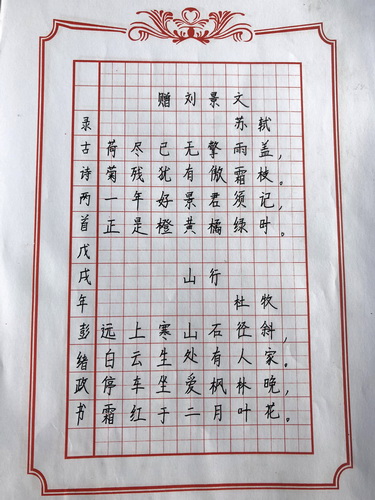 赠刘景文
苏轼
荷尽已无擎雨盖，
菊残犹有傲霜枝。
一年好景君须记，
正是橙黄橘绿时。
山行
杜牧
远上寒山石径斜，
白云生处有人家。
停车坐爱枫林晚，
霜红于二月叶花。
录古诗两首戊戌年彭绪政书